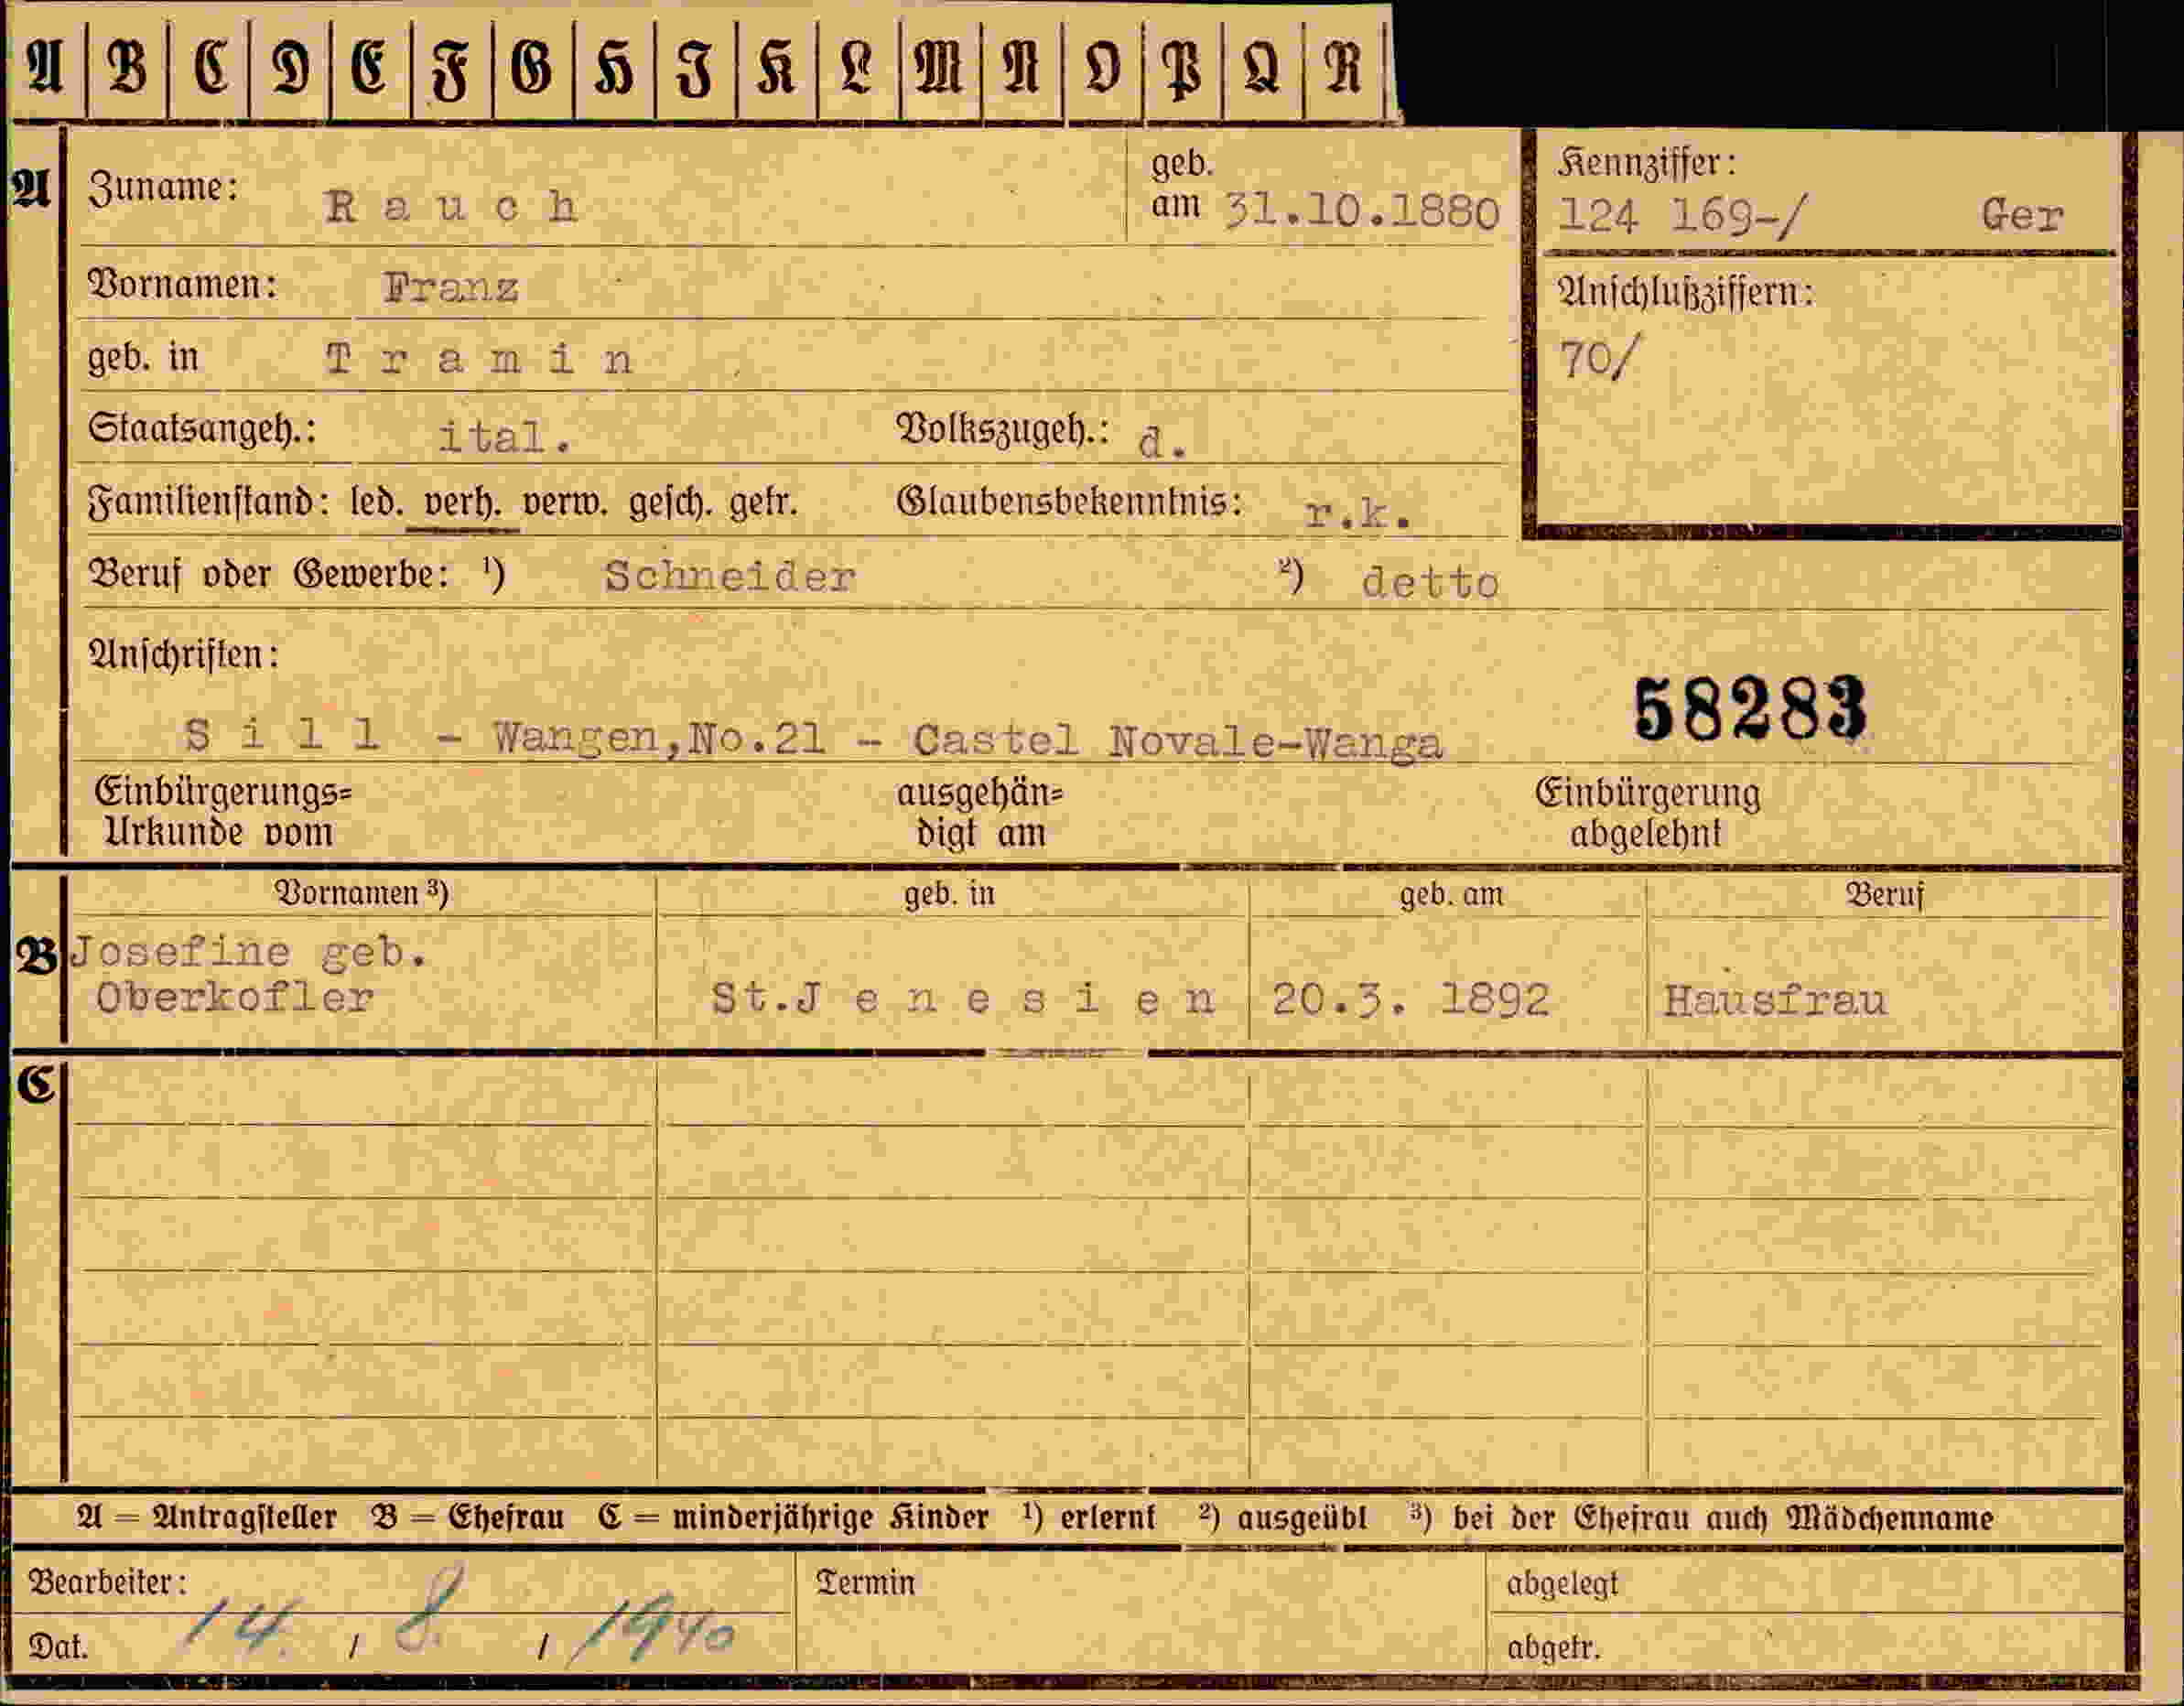 A B C D E F G H I K L M N O P Q R
A Zuname: Rauch geb. am 31.10.1880 Kennziffer: 124 169-/ Ger
Vornamen: Franz Anschlußziffern: 70/
geb. in Tramin
Staatsangeh.: ital. Volkszugeh.: d.
Familienstand: led. verh. verw. gesch. getr. Glaubensbekenntnis: r.k.
Beruf oder Gewerbe: ¹) Schneider ²) detto
Anschriften:
58283
Sill - Wangen,No.21 - Castel Novale-Wanga
Einbürgerungs= ausgehän= Einbürgerung
Urkunde vom digt am abgelehnt
Vornamen ³) geb. in geb. am Beruf
B Josefine geb.
Oberkofler St.Jenesien 20.3. 1892 Hausfrau
C
A = Antragsteller B = Ehefrau C = minderjährige Kinder ¹) erlernt ²) ausgeübt ³) bei der Ehefrau auch Mädchenname
Bearbeiter: Termin abgelegt
Dat. 14. / 8. / 1940 abgetr.